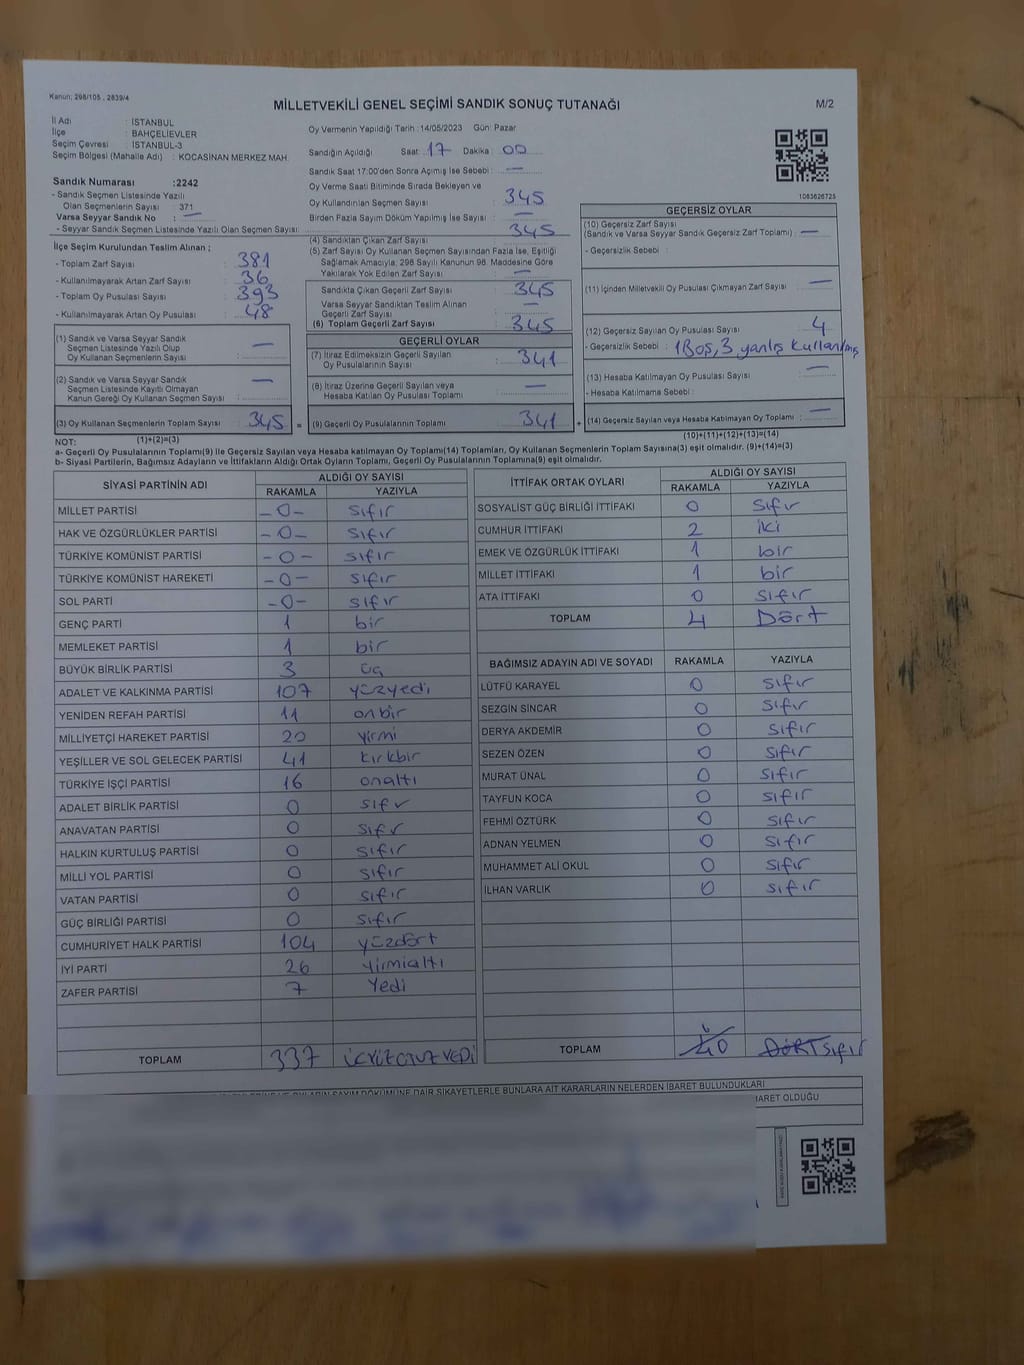 Kanun: 298/105 , 2839/4
MİLLETVEKİLİ GENEL SEÇİMİ SANDIK SONUÇ TUTANAĞI
M/2
İl Adı : İSTANBUL
İlçe : BAHÇELİEVLER
Seçim Çevresi : İSTANBUL-3
Seçim Bölgesi (Mahalle Adı) : KOCASİNAN MERKEZ MAH.
Sandık Numarası :2242
- Sandık Seçmen Listesinde Yazılı
Olan Seçmenlerin Sayısı : 371
Varsa Seyyar Sandık No : —
- Seyyar Sandık Seçmen Listesinde Yazılı Olan Seçmen Sayısı:
Oy Vermenin Yapıldığı Tarih : 14/05/2023 Gün: Pazar
Sandığın Açıldığı Saat: 17 Dakika : 00
Sandık Saat 17:00'den Sonra Açılmış İse Sebebi : —
Oy Verme Saati Bitiminde Sırada Bekleyen ve
Oy Kullandırılan Seçmen Sayısı : 345
Birden Fazla Sayım Döküm Yapılmış İse Sayısı : —
1063626725
İlçe Seçim Kurulundan Teslim Alınan ;
- Toplam Zarf Sayısı : 381
- Kullanılmayarak Artan Zarf Sayısı : 36
- Toplam Oy Pusulası Sayısı : 393
- Kullanılmayarak Artan Oy Pusulası : 48
(1) Sandık ve Varsa Seyyar Sandık
Seçmen Listesinde Yazılı Olup
Oy Kullanan Seçmenlerin Sayısı : —
(2) Sandık ve Varsa Seyyar Sandık
Seçmen Listesinde Kayıtlı Olmayan
Kanun Gereği Oy Kullanan Seçmen Sayısı : —
(3) Oy Kullanan Seçmenlerin Toplam Sayısı : 345
(4) Sandıktan Çıkan Zarf Sayısı : 345
(5) Zarf Sayısı Oy Kullanan Seçmen Sayısından Fazla İse, Eşitliği
Sağlamak Amacıyla, 298 Sayılı Kanunun 98. Maddesine Göre
Yakılarak Yok Edilen Zarf Sayısı : —
Sandıkta Çıkan Geçerli Zarf Sayısı : 345
Varsa Seyyar Sandıktan Teslim Alınan
Geçerli Zarf Sayısı : —
(6) Toplam Geçerli Zarf Sayısı : 345
GEÇERLİ OYLAR
(7) İtiraz Edilmeksizin Geçerli Sayılan
Oy Pusulalarının Sayısı : 341
(8) İtiraz Üzerine Geçerli Sayılan veya
Hesaba Katılan Oy Pusulası Toplamı : —
= (9) Geçerli Oy Pusulalarının Toplamı : 341 +
GEÇERSİZ OYLAR
(10) Geçersiz Zarf Sayısı
(Sandık ve Varsa Seyyar Sandık Geçersiz Zarf Toplamı) : —
- Geçersizlik Sebebi :
(11) İçinden Milletvekili Oy Pusulası Çıkmayan Zarf Sayısı : —
(12) Geçersiz Sayılan Oy Pusulası Sayısı : 4
- Geçersizlik Sebebi : 1 Boş, 3 yanlış kullanılmış
(13) Hesaba Katılmayan Oy Pusulası Sayısı : —
- Hesaba Katılmama Sebebi :
(14) Geçersiz Sayılan veya Hesaba Katılmayan Oy Toplamı : —
NOT: (1)+(2)=(3) (10)+(11)+(12)+(13)=(14)
a- Geçerli Oy Pusulalarının Toplamı(9) ile Geçersiz Sayılan veya Hesaba katılmayan Oy Toplamı(14) Toplamları, Oy Kullanan Seçmenlerin Toplam Sayısına(3) eşit olmalıdır. (9)+(14)=(3)
b- Siyasi Partilerin, Bağımsız Adayların ve İttifakların Aldığı Ortak Oyların Toplamı, Geçerli Oy Pusulalarının Toplamına(9) eşit olmalıdır.
SİYASİ PARTİNİN ADI ALDIĞI OY SAYISI
RAKAMLA YAZIYLA
MİLLET PARTİSİ -0- sıfır
HAK VE ÖZGÜRLÜKLER PARTİSİ -0- sıfır
TÜRKİYE KOMÜNİST PARTİSİ -0- sıfır
TÜRKİYE KOMÜNİST HAREKETİ -0- sıfır
SOL PARTİ -0- sıfır
GENÇ PARTİ 1 bir
MEMLEKET PARTİSİ 1 bir
BÜYÜK BİRLİK PARTİSİ 3 üç
ADALET VE KALKINMA PARTİSİ 107 yüzyedi
YENİDEN REFAH PARTİSİ 11 onbir
MİLLİYETÇİ HAREKET PARTİSİ 20 yirmi
YEŞİLLER VE SOL GELECEK PARTİSİ 41 kırkbir
TÜRKİYE İŞÇİ PARTİSİ 16 onaltı
ADALET BİRLİK PARTİSİ 0 sıfır
ANAVATAN PARTİSİ 0 sıfır
HALKIN KURTULUŞ PARTİSİ 0 sıfır
MİLLİ YOL PARTİSİ 0 sıfır
VATAN PARTİSİ 0 sıfır
GÜÇ BİRLİĞİ PARTİSİ 0 sıfır
CUMHURİYET HALK PARTİSİ 104 yüzdört
İYİ PARTİ 26 yirmialtı
ZAFER PARTİSİ 7 Yedi
TOPLAM 337 ÜÇYÜZOTUZYEDİ
İTTİFAK ORTAK OYLARI ALDIĞI OY SAYISI
RAKAMLA YAZIYLA
SOSYALİST GÜÇ BİRLİĞİ İTTİFAKI 0 sıfır
CUMHUR İTTİFAKI 2 iki
EMEK VE ÖZGÜRLÜK İTTİFAKI 1 bir
MİLLET İTTİFAKI 1 bir
ATA İTTİFAKI 0 sıfır
TOPLAM 4 Dört
BAĞIMSIZ ADAYIN ADI VE SOYADI RAKAMLA YAZIYLA
LÜTFÜ KARAYEL 0 sıfır
SEZGİN SİNCAR 0 sıfır
DERYA AKDEMİR 0 sıfır
SEZEN ÖZEN 0 sıfır
MURAT ÜNAL 0 sıfır
TAYFUN KOCA 0 sıfır
FEHMİ ÖZTÜRK 0 sıfır
ADNAN YELMEN 0 sıfır
MUHAMMET ALİ OKUL 0 sıfır
İLHAN VARLIK 0 sıfır
TOPLAM 0 DÖRT sıfır
SAYIM DÖKÜMÜNE DAİR ŞİKAYETLERLE BUNLARA AİT KARARLARIN NELERDEN İBARET BULUNDUKLARI
İBARET OLDUĞU